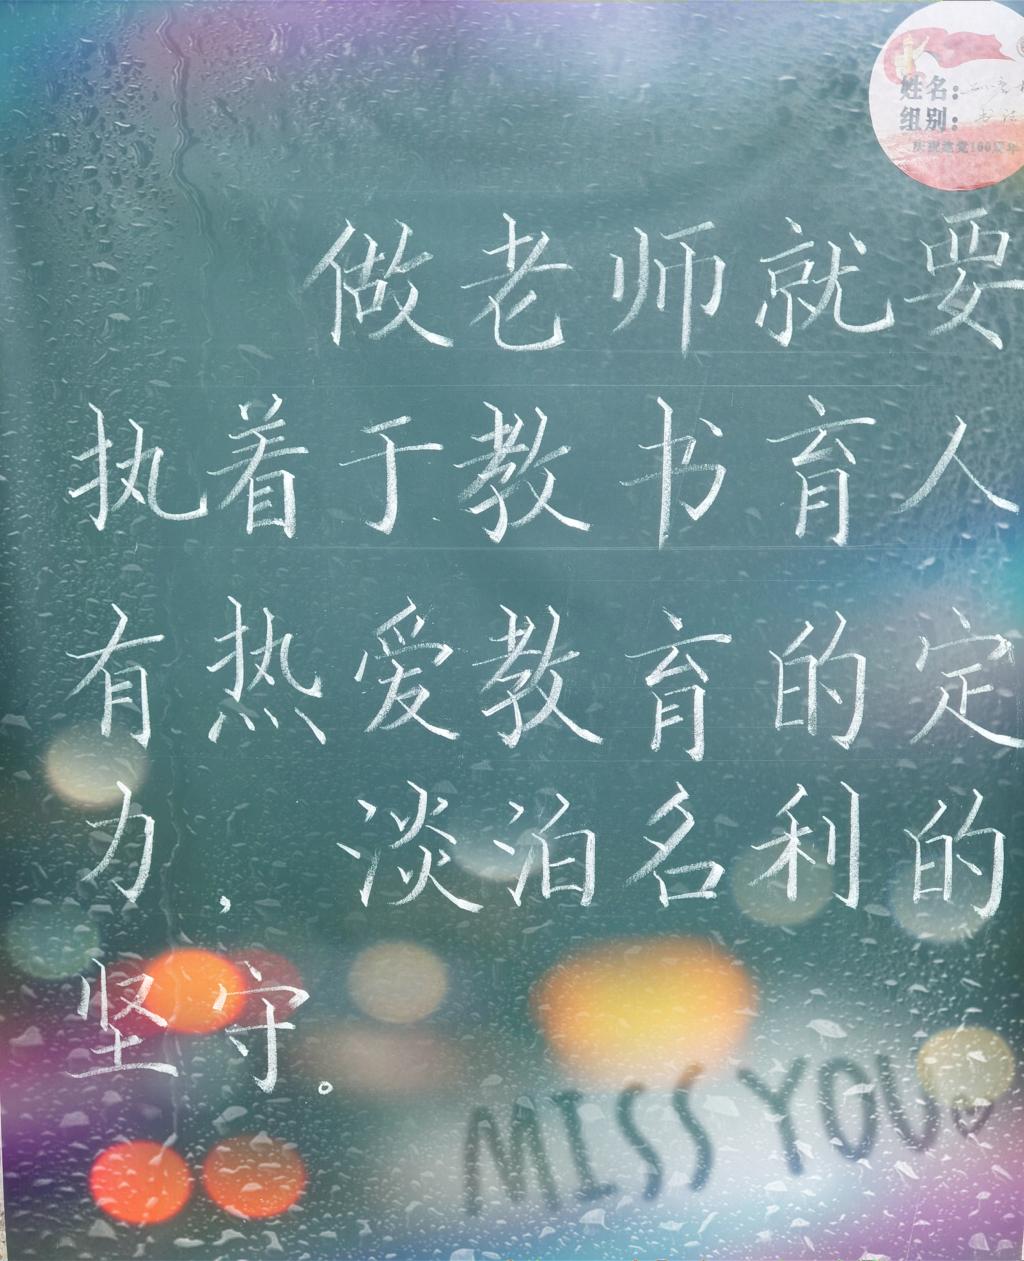 姓名：
组别：书法
庆祝建党100周年
做老师就要
执着于教书育人
有热爱教育的定
力，淡泊名利的
坚守。
MISS YOU